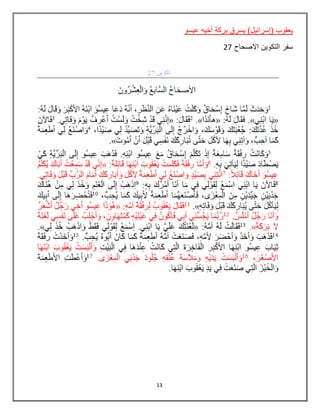 يعقوب (إسرائيل) يسرق بركة أخيه عيسو
سفر التكوين الاصحاح 27
تكوين 27
الأصحَاحُ السَّابعُ وَالْعِشْرُونَ
1وَحَدَثَ لَمَّا شَاخَ إِسْحَاقُ وَكَلَّتْ عَيْنَاهُ عَنِ النَّظَرِ، أَنَّهُ دَعَا عِيسُوَ ابْنَهُ الأَكْبَرَ وَقَالَ لَهُ:
«يَا ابْنِي». فَقَالَ لَهُ: «هأَنَذَا». 2فَقَالَ: «إِنَّنِي قَدْ شِخْتُ وَلَسْتُ أَعْرِفُ يَوْمَ وَفَاتِي. 3فَالآنَ
خُذْ عُدَّتَكَ: جُعْبَتَكَ وَقَوْسَكَ، وَاخْرُجْ إِلَى الْبَرِّيَّةِ وَتَصَيَّدْ لِي صَيْدًا، 4وَاصْنَعْ لِي أَطْعِمَةً
كَمَا أُحِبُّ، وَأْتِنِي بِهَا لآكُلَ حَتَّى تُبَارِكَكَ نَفْسِي قَبْلَ أَنْ أَمُوتَ».
5وَكَانَتْ رِفْقَةُ سَامِعَةً إِذْ تَكَلَّمَ إِسْحَاقُ مَعَ عِيسُو ابْنِهِ. فَذَهَبَ عِيسُو إِلَى الْبَرِّيَّةِ كَيْ
يَصْطَادَ صَيْدًا لِيَأْتِيَ بِهِ. 6وَأَمَّا رِفْقَةُ فَكَلَمتْ يَعْقُوبَ ابْنِهَا قَائِلةً: «إِنِّي قَدْ سَمِعْتُ أَبَاكَ يُكَلِّمُ
عِيسُوَ أَخَاكَ قَائِلاً: 7ائْتِنِي بِصَيْدٍ وَاصْنَعْ لِي أَطْعِمَةً لآكُلَ وَأُبَارِكَكَ أَمَامَ الرَّبِّ قَبْلَ وَفَاتِي.
8فَالآنَ يَا ابْنِي اسْمَعْ لِقَوْلِي فِي مَا أَنَا آمُرُكَ بِهِ: 9اِذْهَبْ إِلَى الْغَنَمِ وَخُذْ لِي مِنْ هُنَاكَ
جَدْيَيْنِ جَيِّدَيْنِ مِنَ الْمِعْزَى، فَأَصْنَعَهُمَا أَطْعِمَةً لأَبِيكَ كَمَا يُحِبُّ، 10فَتُحْضِرَهَا إِلَى أَبِيكَ
لِيَأْكُلَ حَتَّى يُبَارِكَكَ قَبْلَ وَفَاتِهِ». 11فَقَالَ يَعْقُوبُ لِرِفْقَةَ أُمِّهِ: «هُوَذَا عِيسُو أَخِي رَجُلٌ أَشْعَرُ
وَأَنَا رَجُلٌ أَمْلَسُ. 12رُبَّمَا يَجُسُّنِي أَبِي فَأَكُونُ فِي عَيْنَيْهِ كَمُتَهَاوِنٍ، وَأَجْلِبُ عَلَى نَفْسِي لَعْنَةً
لاَ بَرَكَةً». 13فَقَالَتْ لَهُ أُمُّهُ: «لَعْنَتُكَ عَلَيَّ يَا ابْنِي. اِسْمَعْ لِقَوْلِي فَقَطْ وَاذْهَبْ خُذْ لِي».
14فَذَهَبَ وَأَخَذَ وَأَحْضَرَ لأُمِّهِ، فَصَنَعَتْ أُمُّهُ أَطْعِمَةً كَمَا كَانَ أَبُوهُ يُحِبُّ. 15وَأَخَذَتْ رِفْقَةُ
ثِيَابَ عِيسُو ابْنِهَا الأَكْبَرِ الْفَاخِرَةَ الَّتِي كَانَتْ عِنْدَهَا فِي الْبَيْتِ وَأَلْبَسَتْ يَعْقُوبَ ابْنَهَا
الأَصْغَرَ، 16وَأَلْبَسَتْ يَدَيْهِ وَمَلاَسَةَ عُنُقِهِ جُلُودَ جَدْيَيِ الْمِعْزَى. 17وَأَعْطَتِ الأَطْعِمَةَ
وَالْخُبْزَ الَّتِي صَنَعَتْ فِي يَدِ يَعْقُوبَ ابْنِهَا.
13